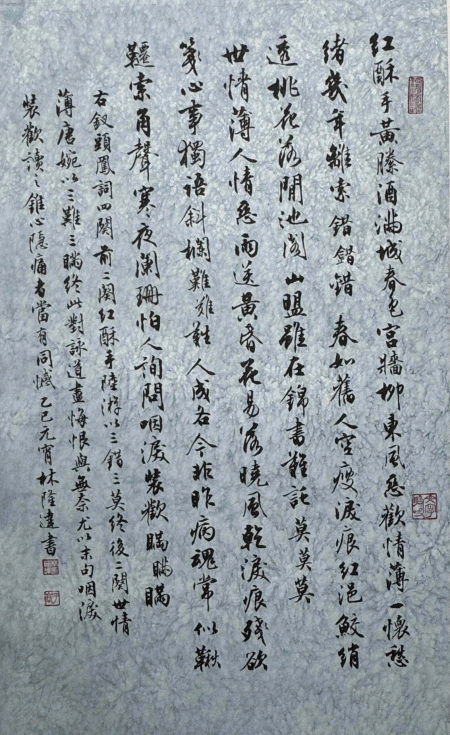 紅酥手黃縢酒滿城春色宮牆柳東風惡歡情薄一懷愁
緒幾年離索錯錯錯春如舊人空瘦淚痕紅浥鮫綃
透桃花落閒池閣山盟雖在錦書難託莫莫莫
世情薄人情惡雨送黃昏花易落曉風乾淚痕殘欲
箋心事獨語斜欄難難難人成各今非昨病魂常似鞦
韆索角聲寒夜闌珊怕人詢問咽淚裝歡瞞瞞瞞
右釵頭鳳詞四闋前二闋紅酥手陸游以三錯三莫終後二闋世情
薄唐婉以三難三瞞終此對詠道盡悔恨與無奈尤以末句咽淚
裝歡讀之錐心隱痛者當有同慽乙巳元宵林隆達書